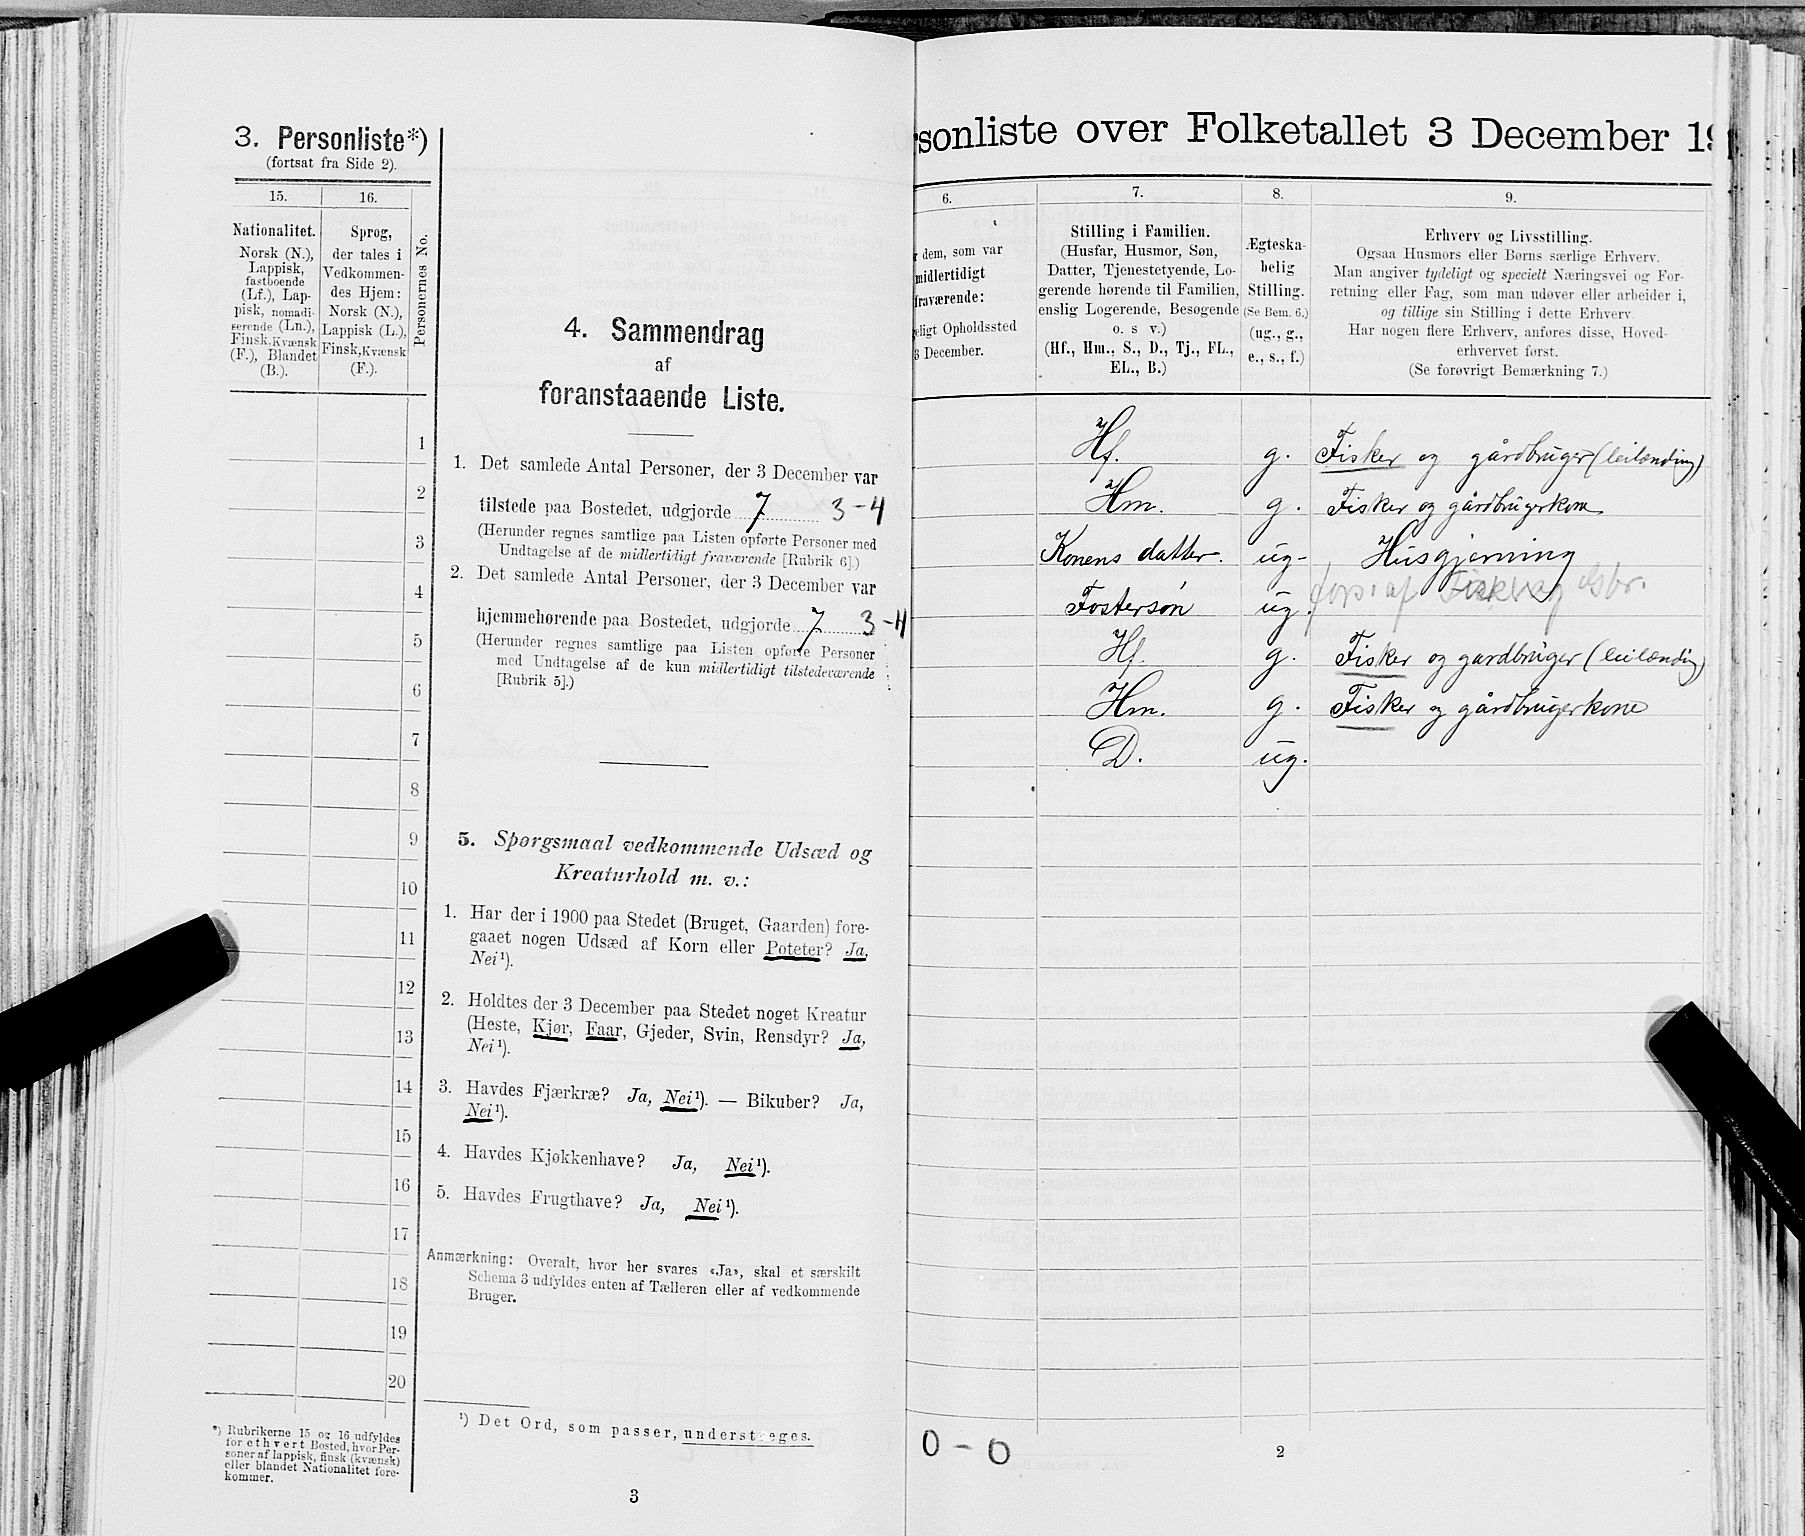 3. Personliste*)
(fortsat fra Side 2).
15.
16.
Personernes No.
Nationalitet.
Norsk (N.),
Lappisk,
fastboende
(Lf.), Lap-
pisk, nomadi-
serende (Ln.),
Finsk, Kvænsk
(F.), Blandet
(B.).
Sprog,
der tales i
Vedkommen-
des Hjem:
Norsk (N.),
Lappisk (L.),
Finsk, Kvænsk
(F.).
1
2
3
4
5
6
7
8
9
10
11
12
13
14
15
16
17
18
19
20
*) Rubrikerne 15 og 16 udfyldes
for ethvert Bosted, hvor Per-
soner af lappisk, finsk (kvænsk)
eller blandet Nationalitet fore-
kommer.
4. Sammendrag
af
foranstaaende Liste.
1. Det samlede Antal Personer, der 3 December var
tilstede paa Bostedet, udgjorde 7 3-4
(Herunder regnes samtlige paa Listen opførte Personer med
Undtagelse af de midlertidigt fraværende [Rubrik 6].)
2. Det samlede Antal Personer, der 3 December var
hjemmehørende paa Bostedet, udgjorde 7 3-4
(Herunder regnes samtlige paa Listen opførte Personer
med Undtagelse af de kun midlertidigt tilstedeværende
[Rubrik 5].)
5. Spørgsmaal vedkommende Udsæd og
Kreaturhold m. v.:
1. Har der i 1900 paa Stedet (Bruget, Gaarden) fore-
gaaet nogen Udsæd af Korn eller Poteter? Ja,
Nei¹).
2. Holdtes der 3 December paa Stedet noget Kreatur
(Heste, Kjør, Faar, Gjeder, Svin, Rensdyr? Ja,
Nei¹).
3. Havdes Fjærkræ? Ja, Nei¹). — Bikuber? Ja,
Nei¹).
4. Havdes Kjøkkenhave? Ja, Nei¹).
5. Havdes Frugthave? Ja, Nei¹).
Anmærkning: Overalt, hvor her svares «Ja», skal et særskilt
Schema 3 udfyldes enten af Tælleren eller af vedkommende
Bruger.
¹) Det Ord, som passer, understreges.
3
rsonliste over Folketallet 3 December 19
6.
dem, som var
midlertidigt
fraværende:
eligt Opholdssted
3 December.
7.
Stilling i Familien.
(Husfar, Husmor, Søn,
Datter, Tjenestetyende, Lo-
gerende hørende til Familien,
enslig Logerende, Besøgende
o. s v.)
(Hf., Hm., S., D., Tj., FL.,
EL., B.)
8.
Ægteska-
belig
Stilling.
(Se Bem. 6.)
(ug., g.,
e., s., f.)
9.
Erhverv og Livsstilling.
Ogsaa Husmors eller Børns særlige Erhverv.
Man angiver tydeligt og specielt Næringsvei og For-
retning eller Fag, som man udøver eller arbeider i,
og tillige sin Stilling i dette Erhverv.
Har nogen flere Erhverv, anføres disse, Hoved-
erhvervet først.
(Se forøvrigt Bemærkning 7.)
Hf. g. Fisker og gårdbruger (leilænding)
Hm. g. Fisker og gårdbrugerkone
Konens datter. ug. Husgjerning
Fostersøn ug. fors. af Fisker og Gbr.
Hf. g. Fisker og gardbruger (leilænding)
Hm. g. Fisker og gårdbrugerkone
D. ug.
0-0
2